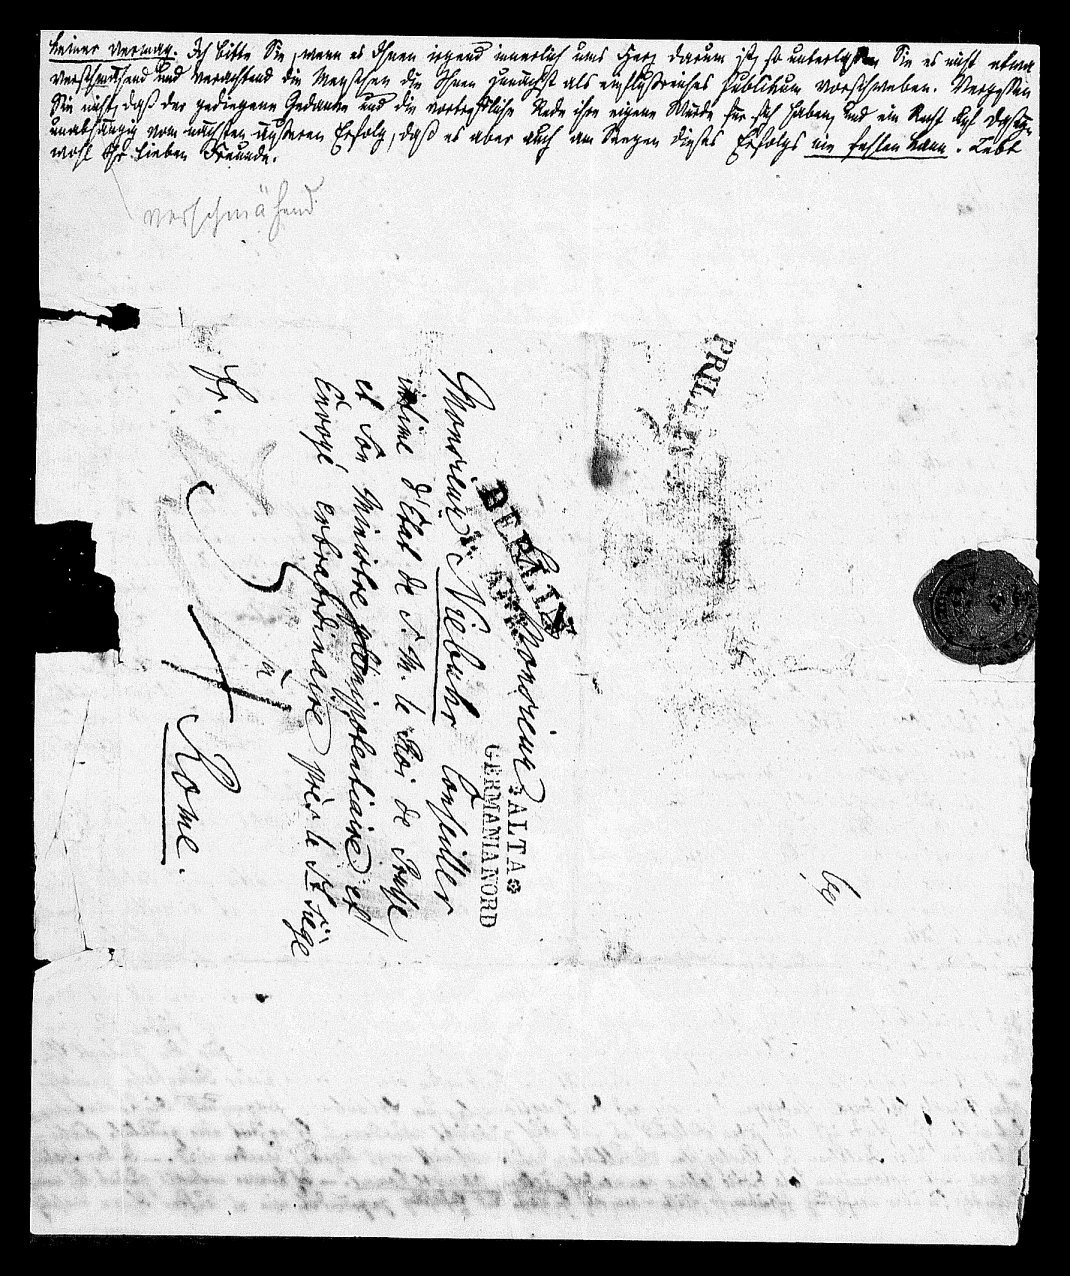 keiner vermag. Ich bitte Sie, wenn es Ihnen irgend innerlich ums Herz darum ist, so unterlassen Sie es nicht etwa
verschmähend und verachtend die Menschen die Ihnen zunächst als einflußreiches Publikum vorschweben. Vergessen
Sie nicht, daß der gediegene Gedanke und die vortreffliche Rede ihre eigene Würde für sich haben, und ein Recht auf Daseyn
unabhängig vom nächsten äußeren Erfolg, daß es aber auch am Seegen dieses Erfolgs nie fehlen kann. Lebt
wohl Ihr lieben Freunde.
verschmähend
PR
BERLIN
à Monsieur
Monsieur Niebuhr Conseiller
intime d'Etat de S. M. le Roi de Prusse
et Son Ministre plénipotentiaire et
Envoyé extraordinaire près le St. Siége
fr.
à
Rome.
ALTA
GERMANIA NORD